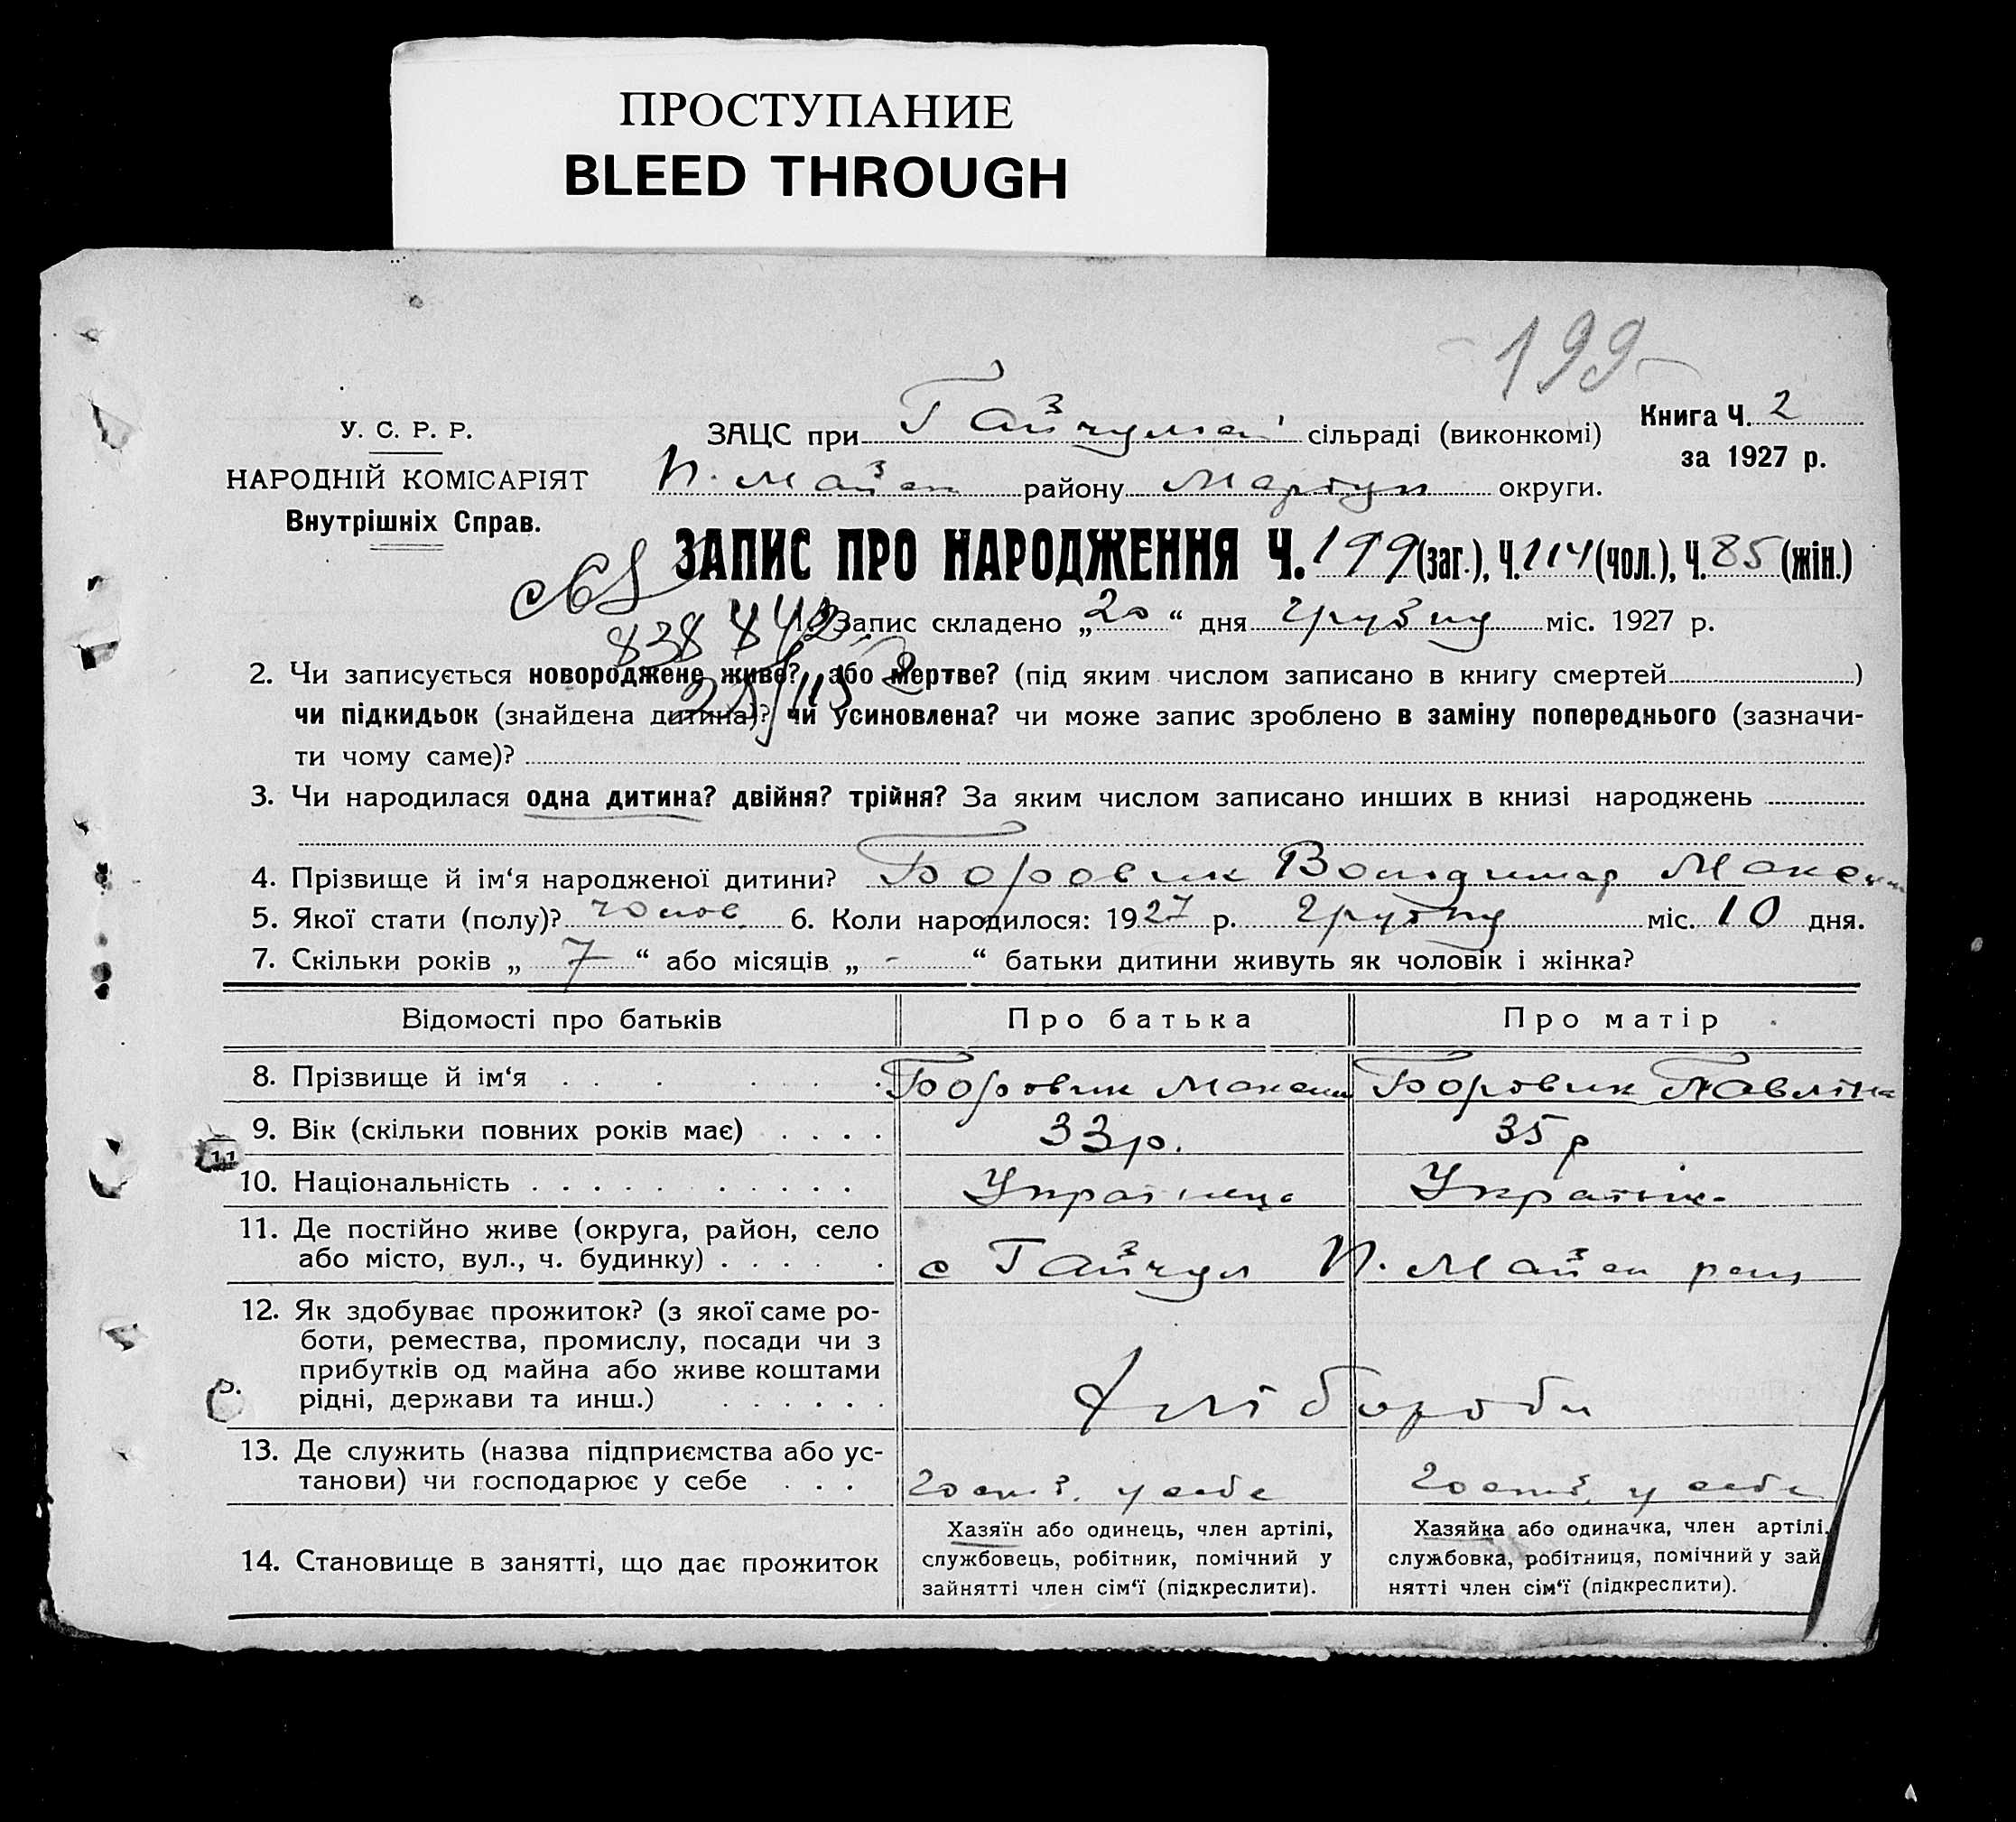 ПРОСТУПАНИЕ
BLEED THROUGH
199
У. С. Р. Р.
НАРОДНІЙ КОМІСАРІЯТ
Внутрішніх Справ.
ЗАЦС при Гайчульськ сільраді (виконкомі)
Книга Ч. 2
за 1927 р.
району Маріуп округи.
ЗАПИС ПРО НАРОДЖЕННЯ Ч. 199 (заг.), Ч. 114 (чол.), Ч. 85 (жін.)
838 443
1. Запис складено „20“ дня грудня міс. 1927 р.
2. Чи записується новороджене живе? або мертве? (під яким числом записано в книгу смертей )
чи підкидьок (знайдена дитина)? чи усиновлена? чи може запис зроблено в заміну попереднього (зазначи-
ти чому саме)?
3. Чи народилася одна дитина? двійня? трійня? За яким числом записано инших в книзі народжень
4. Прізвище й ім‘я народженої дитини? Боровик Володимир Максим
5. Якої стати (полу)? чолов. 6. Коли народилося: 1927 р. грудня міс. 10 дня.
7. Скільки років „7“ або місяців „-“ батьки дитини живуть як чоловік і жінка?
Відомості про батьків Про батька Про матір
8. Прізвище й ім‘я . . . . . . . Боровик Максим Боровик Павліна
9. Вік (скільки повних років має) . . . . 33 р. 35 р
10. Національність . . . . . . . . . . . Українець Українка
11. Де постійно живе (округа, район, село
або місто, вул., ч. будинку) . . . . . с Гайчул
12. Як здобуває прожиток? (з якої саме ро-
боти, ремества, промислу, посади чи з
прибутків од майна або живе коштами
рідні, держави та инш.) . . . . . . Хлібороби
13. Де служить (назва підприємства або ус-
танови) чи господарює у себе . . . госп. у себе госп. у себе
14. Становище в занятті, що дає прожиток
Хазяїн або одинець, член артілі,
службовець, робітник, помічний у
зайнятті член сім‘ї (підкреслити).
Хазяйка або одиначка, член артілі,
службовка, робітниця, помічний у зай
нятті член сім‘ї (підкреслити).